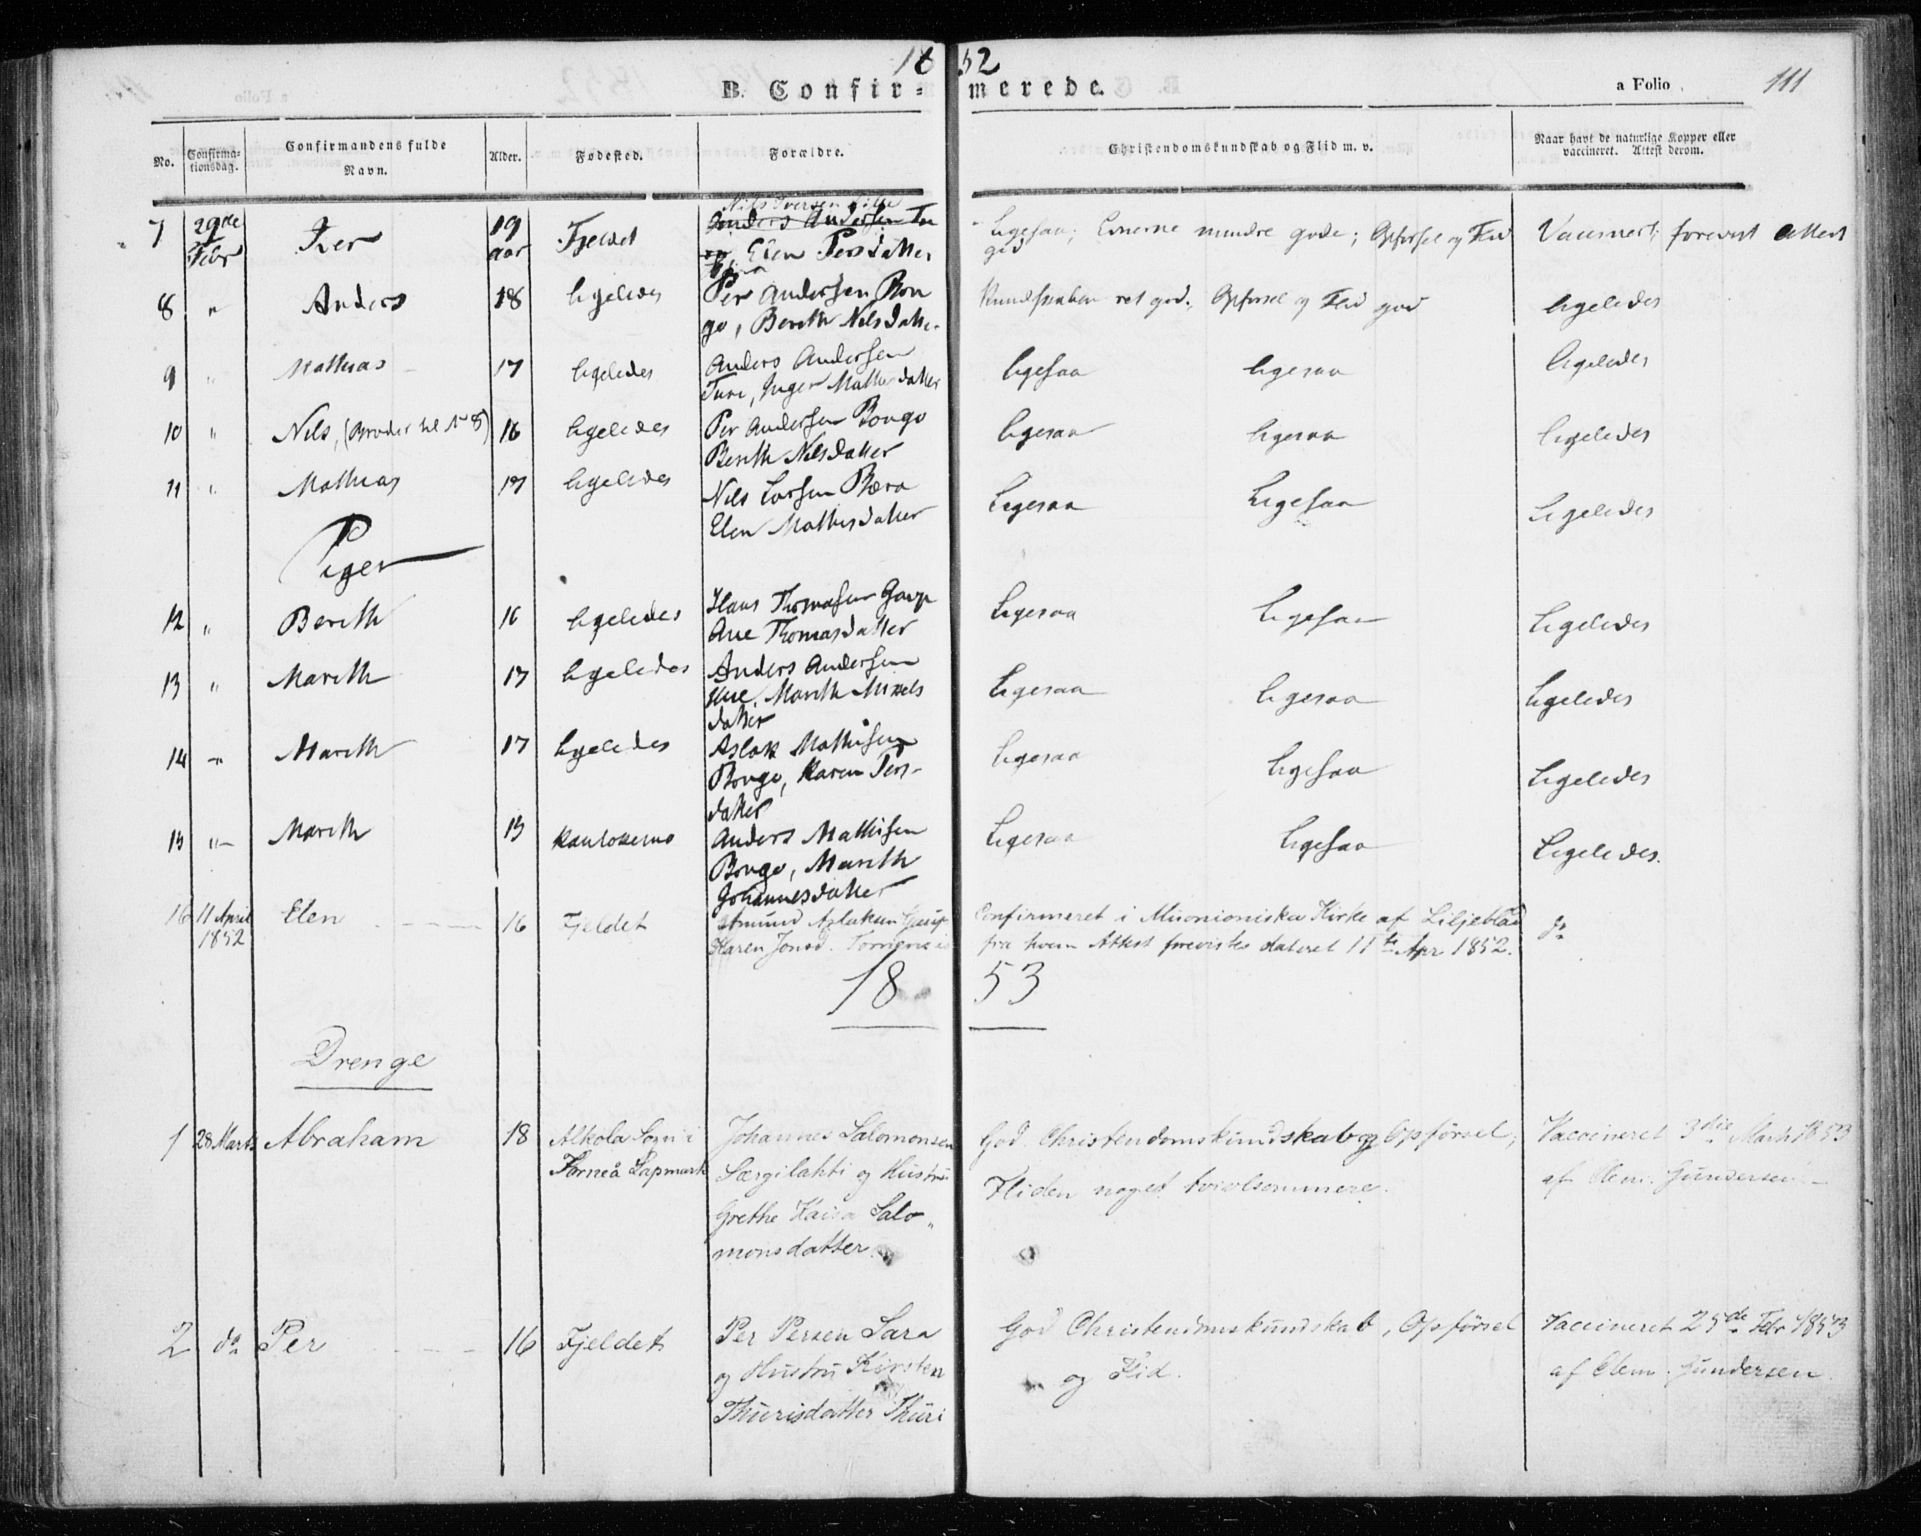 1852
B. Confir- merede.
a Folio 111
No. Confirmationsdag. Confirmandens fulde Navn. Alder. Fødested. Forældre. Christendomskundskab og Flid m. v. Naar havt de naturlige Kopper eller vaccineret. Attest derom.
Nils Iversen
7 29de Febr Per 19 aar Fjeldet Anders Andersen
Elen Persdatter
Ligesaa; Evnerne mindre gode; Opførsel og Flid god
Vaccinert; forevist attest
8 " Anders 18 ligeledes Per Andersen Bon
go, Berith Nilsdatter
Kundskaben ret god; Opførsel og Flid god ligeledes
9 " Mathias 17 ligeledes Anders Andersen
Turi, Inger Mathisdatter
ligesaa ligesaa ligeledes
10 " Nils, (Broder til No 8) 16 ligeledes Per Andersen Bongo
Berith Nilsdatter
ligesaa ligesaa ligeledes
11 " Mathias 17 ligeledes Nils Larsen Bæra
Elen Mathisdatter
Ligesaa Ligesaa Ligeledes
Piger
12 " Berith 16 ligeledes Hans Thomasen Gaup
Ane Thomasdatter
Ligesaa Ligesaa Ligeledes
13 " Marith 17 ligeledes Anders Andersen
Marith Mikels
datter
Ligesaa ligesaa Ligeledes
14 " Marith 17 ligeledes Aslak Mathisen
Bongo, Karen Pers-
datter
Ligesaa ligesaa Ligeledes
15 " Marith 15 Kautokeino Anders Mathisen
Bongo, Marith
Johannesdatter
Ligesaa ligesaa Ligeledes.
16 11 April 1852 Elen 16 Fjeldet Amund Aslaksen Gaup
Karen Jonsd.
Confirmeret i Muonioniska Kirke af Liljeblad
fra hvem Attest forevistes dateret 11te Apr 1852.
do
1853
Drenge
1 28 Marts Abraham 18 Alkola Sogn i
Torneå Lapmark
Johannes Salomonsen
Særgilahti og Hustru
Grethe Kaisa Salo-
monsdatter.
God Christendomskundskab og Opførsel;
Fliden noget tvivlsommere.
Vaccineret 3die Marts 1853
af Clem. Gundersen
2 do Per 16 Fjeldet Per Persen Sara
og Hustru Kirsten
Thurisdatter Thuri
God Christendomskundskab, Opførsel
og Flid.
Vaccineret 25de Febr 1853
af Clem. Gundersen